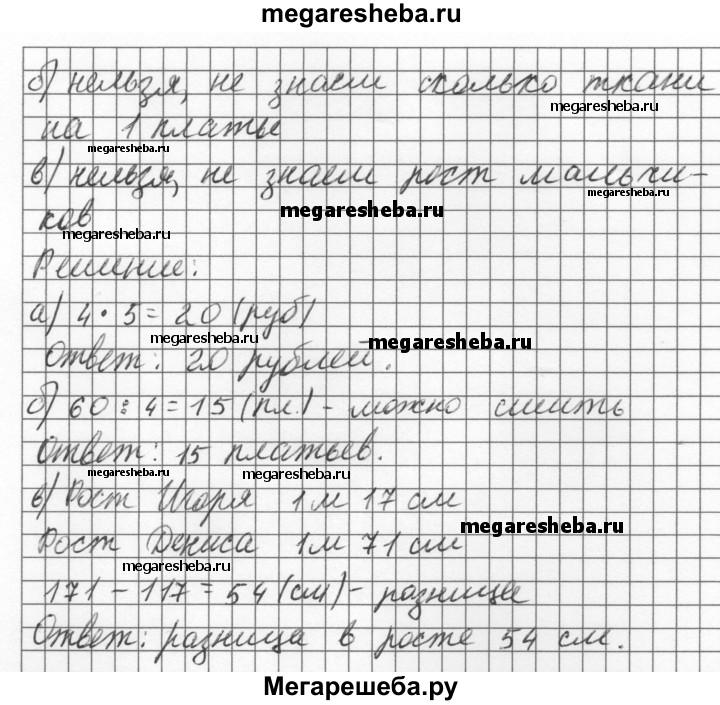 megaresheba.ru
б) нельзя, не знаем сколько ткани
megaresheba.ru
на 1 платье
megaresheba.ru
в) нельзя, не знаем рост мальчи-
megaresheba.ru
megaresheba.ru
ков
megaresheba.ru
Решение:
а) 4 · 5 = 20 (руб)
megaresheba.ru
megaresheba.ru
Ответ: 20 рублей.
б) 60 : 4 = 15 (пл.) - можно сшить
Ответ: 15 платьев.
megaresheba.ru
megaresheba.ru
в) Рост Игоря 1 м 17 см
megaresheba.ru
Рост Дениса 1 м 71 см
megaresheba.ru
171 - 117 = 54 (см) - разница
Ответ: разница в росте 54 см.
Мегарешеба.ру